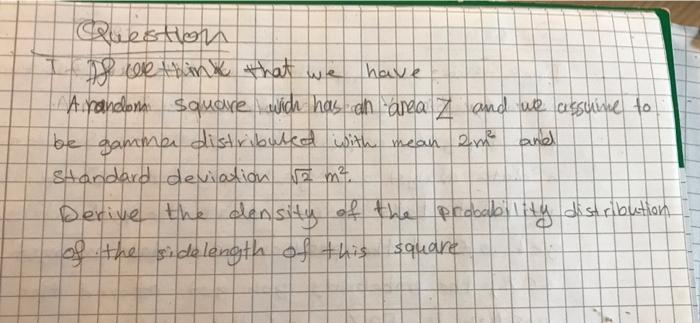 Question
If we think that we have
A random square wich has an area Z and we assume to
be gamma distributed with mean 2m² and
standard deviation √2 m².
Derive the density of the probability distribution
of the sidelength of this square